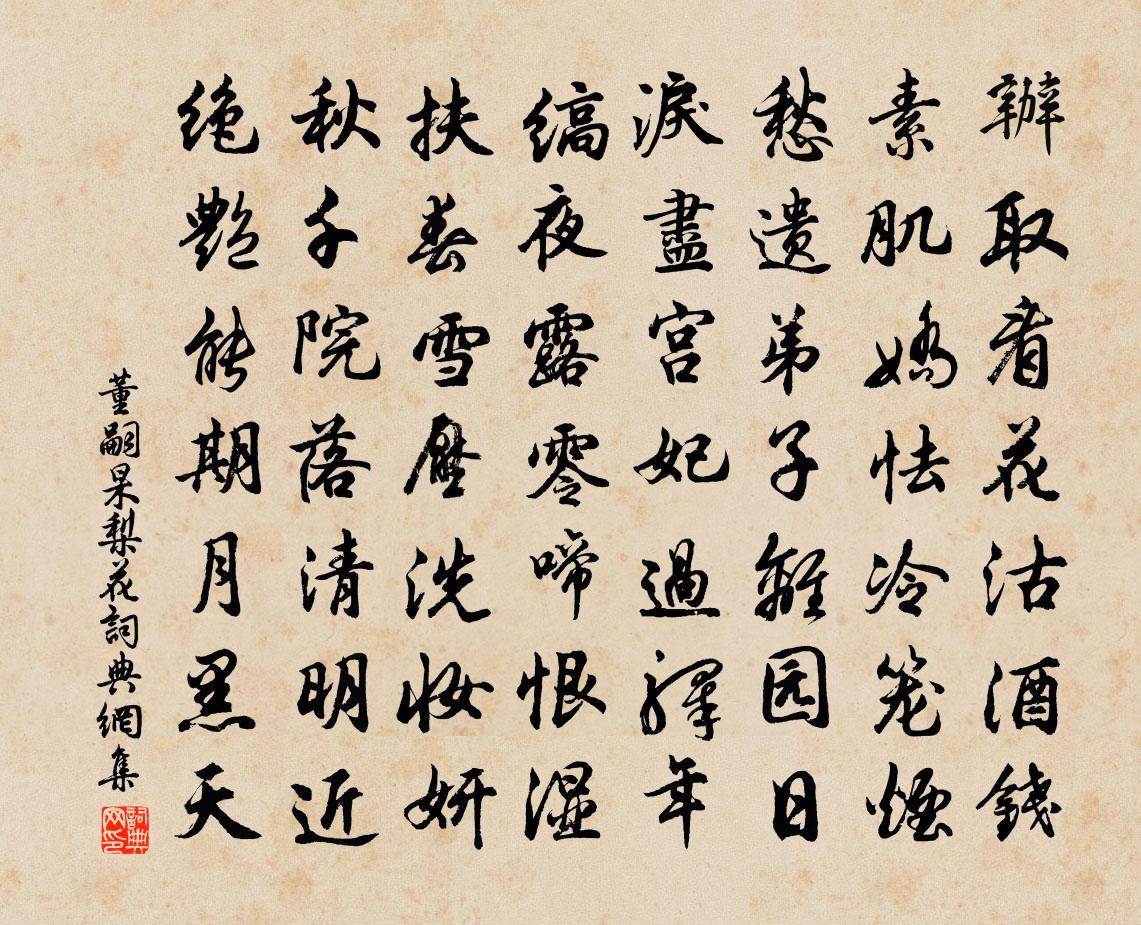 辦取看花沽酒錢
素肌嬌怯冷笼煙
愁遺弟子離园日
淚盡宮妃過驛年
縞夜露零啼恨湿
扶春雪壓洗妝妍
秋千院落清明近
絶艷能期月黑天
董嗣杲梨花詞典網集
詞典网印